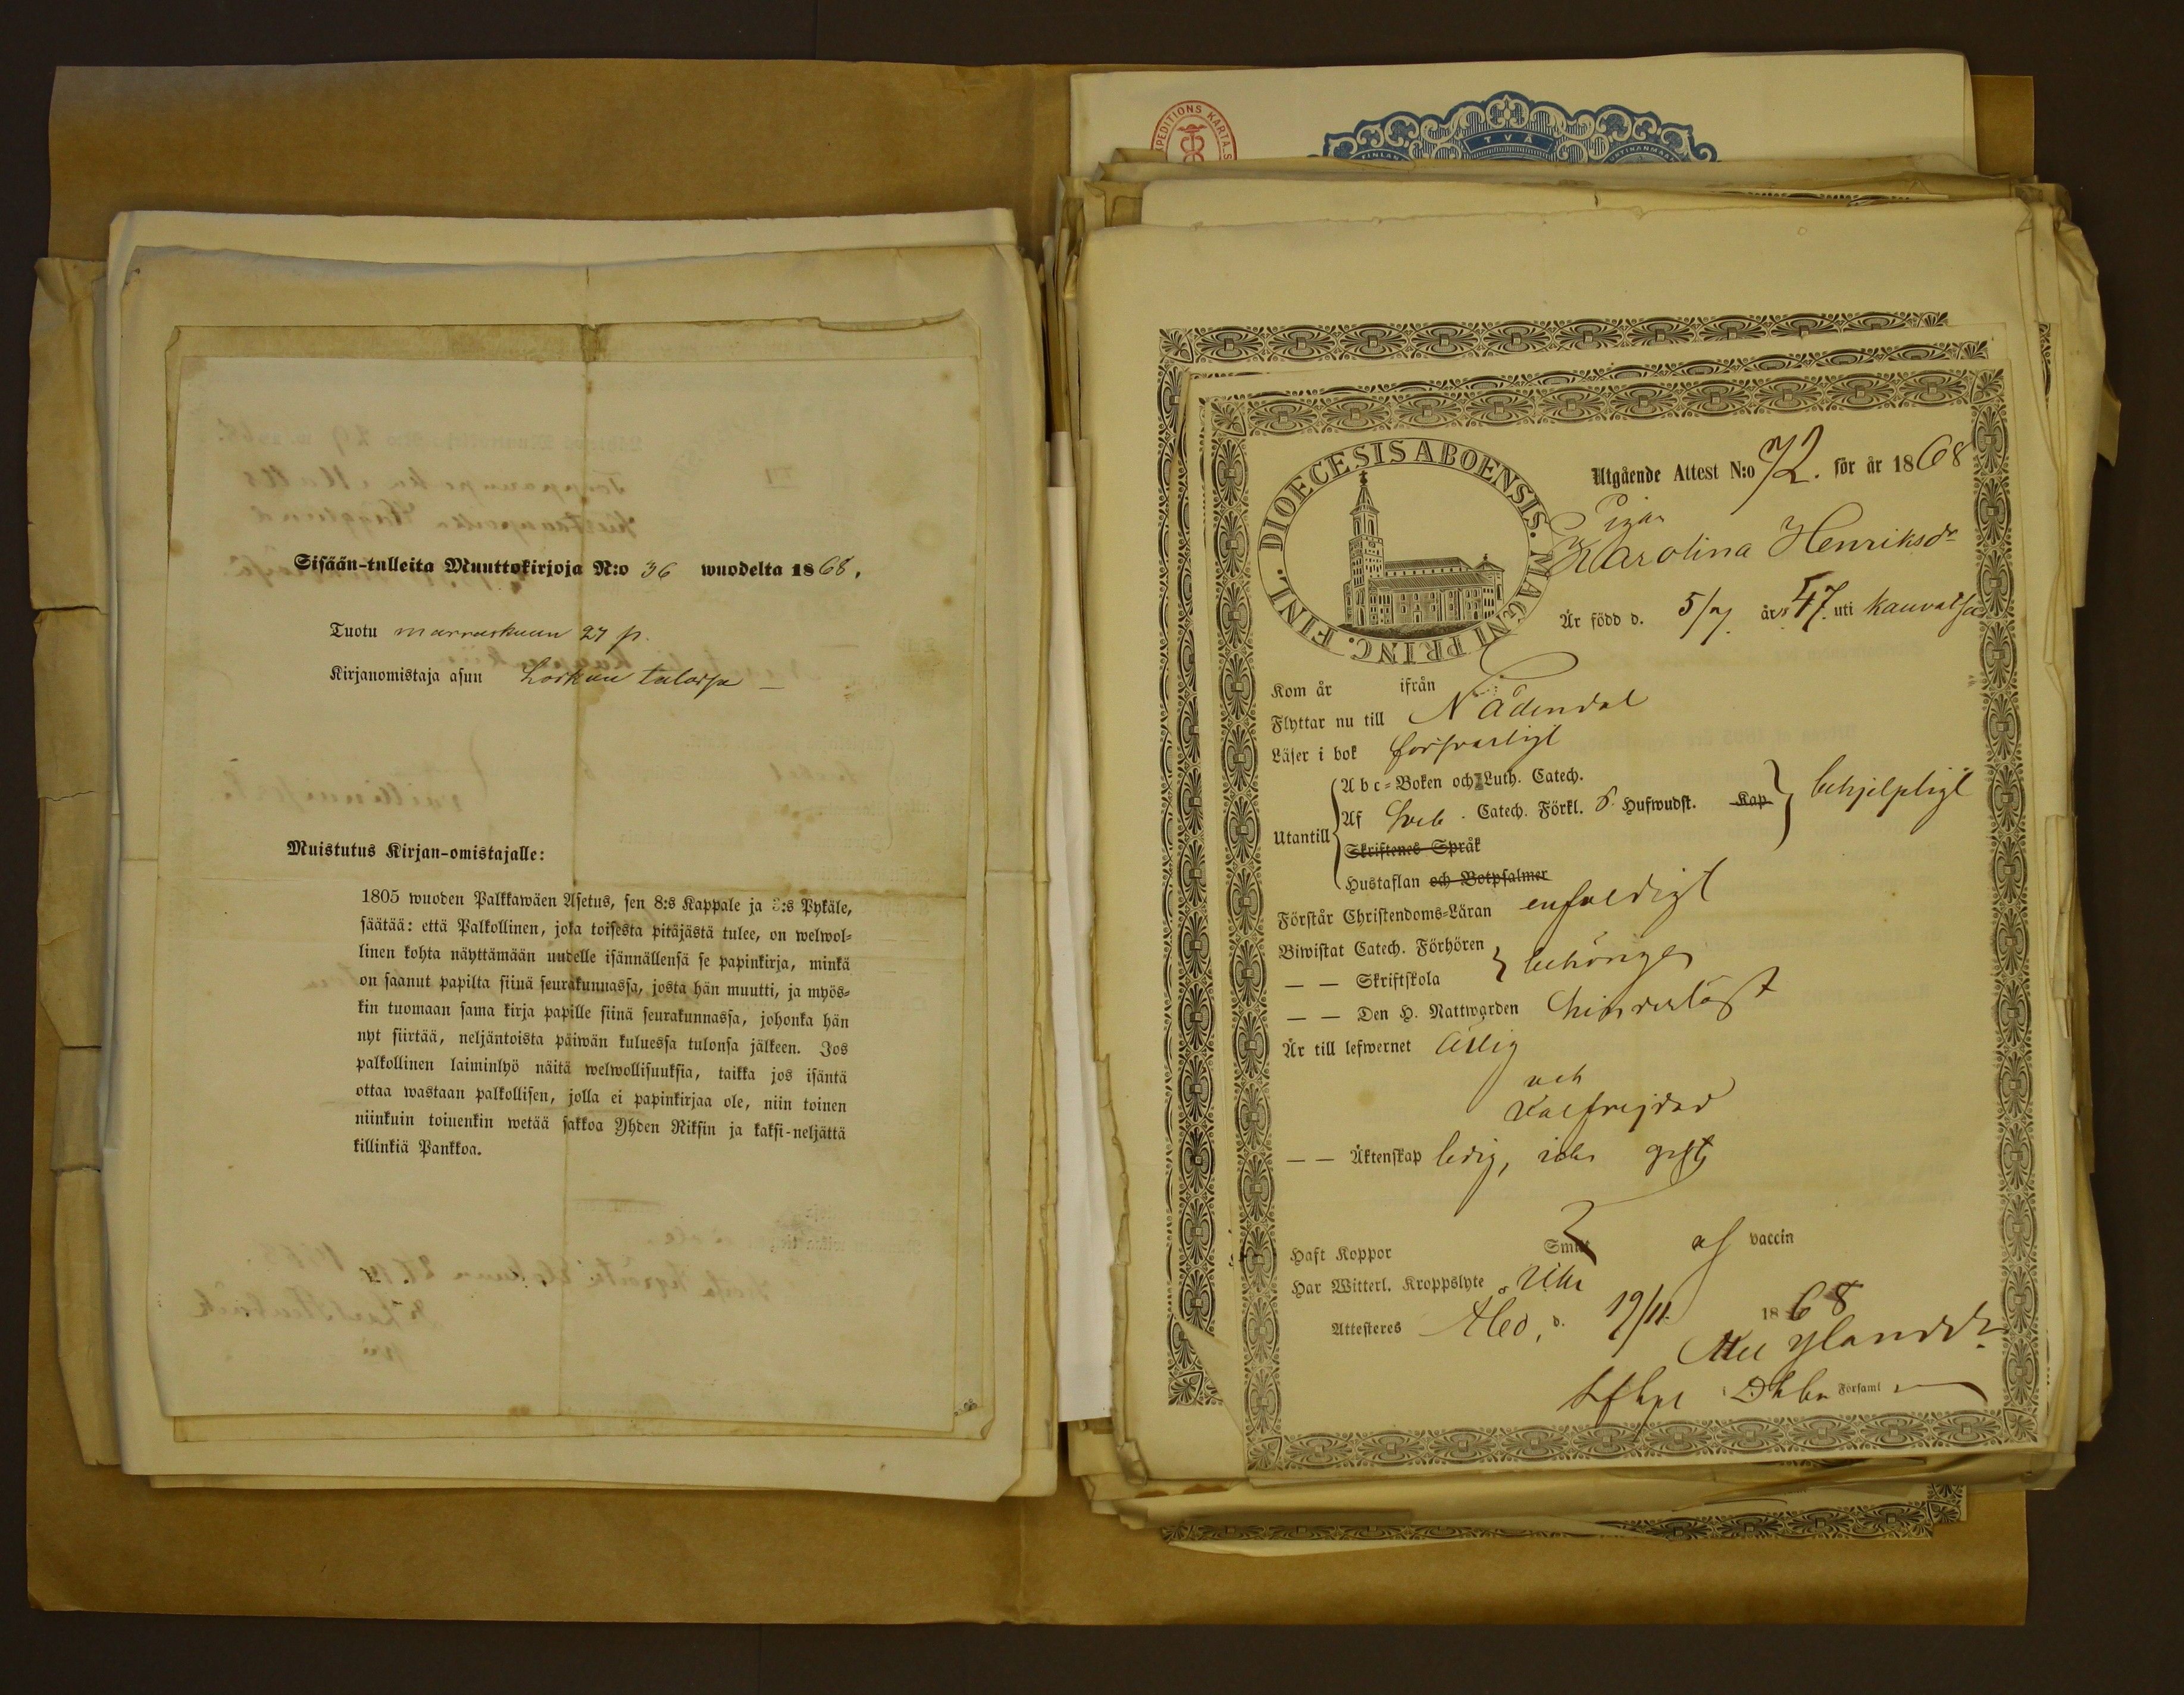 Sisään-tulleita Muuttokirjoja N:o 36 wuodelta 1868.
Tuotu marraskuun 27 p.
Kirjanomistaja asuu talossa
Muistutus Kirjan-omistajalle:
1805 wuoden Palkkawäen Asetus, sen 8:s Kappale ja 3:s Pykäle,
säätää: että Palkollinen, joka toisesta pitäjästä tulee, on welwol=
linen kohta näyttämään uudelle isännällensä se papinkirja, minkä
on saanut papilta siinä seurakunnassa, josta hän muutti, ja myös=
kin tuomaan sama kirja papille siinä seurakunnassa, johonka hän
nyt siirtää, neljäntoista päiwän kuluessa tulonsa jälkeen. Jos
palkollinen laiminlyö näitä welwollisuuksia, taikka jos isäntä
ottaa wastaan palkollisen, jolla ei papinkirjaa ole, niin toinen
niinkuin toinenkin wetää sakkoa Yhden Riksin ja kaksi-neljättä
killinkiä Pankkoa.
EXPEDITIONS KARTA.S
TVÅ
DIOECESIS ABOENSIS. MAGNI PRINC. FINL.
Utgående Attest N:o 72. för år 1868
Pigan
Karolina Henriksdr
Är född d. 5/7 år 47. uti Kauvatsa
Kom år ifrån
Flyttar nu till Nådendal
Läser i bok försvarligt
Utantill
Abc=Boken och Luth. Catech.
Af Sveb. Catech. Förkl. 6 Hufwudst. Kap behjelpligt
Skriftenes Språk
Hustaflan och Botpsalmer
Förstår Christendoms=Läran enfaldigt
Biwistat Catech. Förhören
— — Skriftskola behörigen
— — Den H. Nattwarden hinderlöst
Är till lefwernet ärlig
och
välfrejdad
— — Äktenskap ledig, icke gift
Haft Koppor af vaccin
Har Witterl. Kroppslyte icke
Attesteres d. 19/11. 1868
Församl